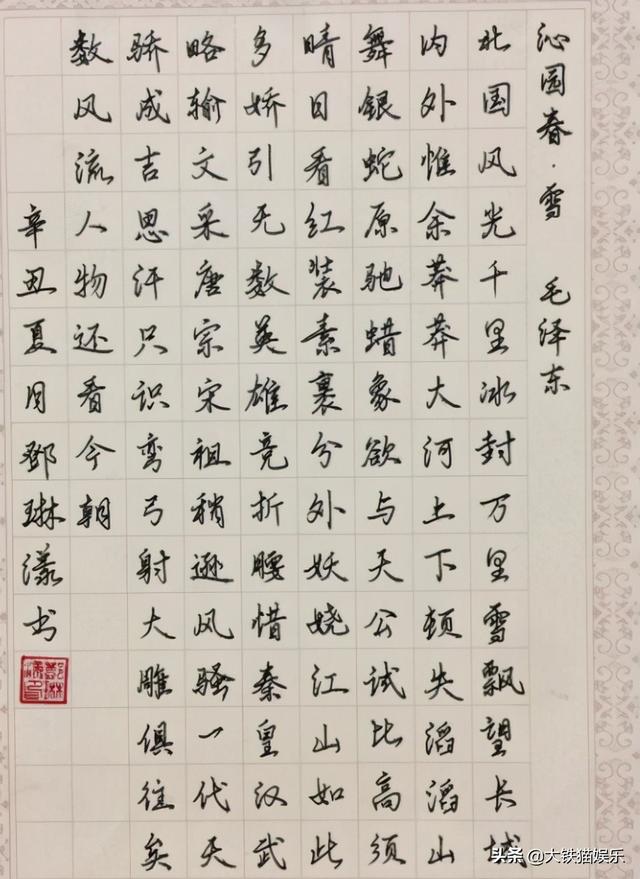 沁园春·雪 毛泽东
北国风光千里冰封万里雪飘望长城
内外惟余莽莽大河上下顿失滔滔山
舞银蛇原驰蜡象欲与天公试比高须
晴日看红装素裹分外妖娆江山如此
多娇引无数英雄竞折腰惜秦皇汉武
略输文采唐宗宋祖稍逊风骚一代天
骄成吉思汗只识弯弓射大雕俱往矣
数风流人物还看今朝
辛丑夏月鄧琳漾书
头条 @大铁猫娱乐